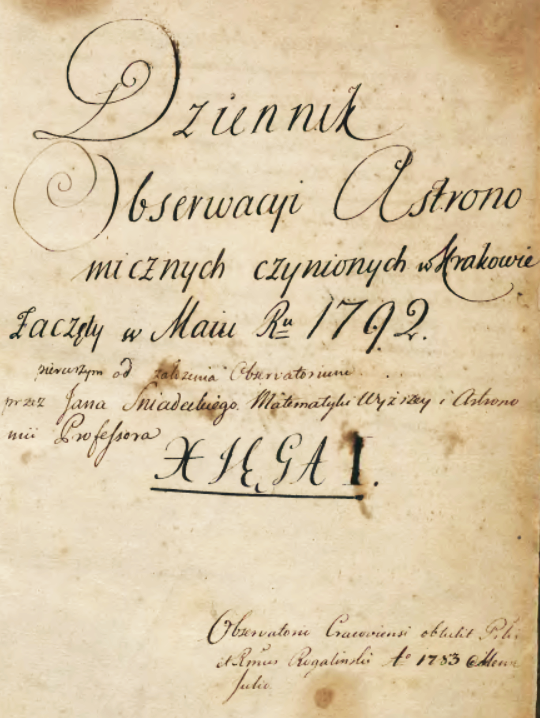 Dziennik
Obserwacyi Astrono
micznych czynionych w Krakowie
Zaczęty w Maiu Ru 1792.
pierwszym od założenia Observatorium
przez Jana Sniadeckiego Matematyki Wyższey i Astrono
mii Professora
XIĘGA I.
Observatorio Cracoviensi obtulit
Rmus Rogalinski Ao 1783 Mense
Julio